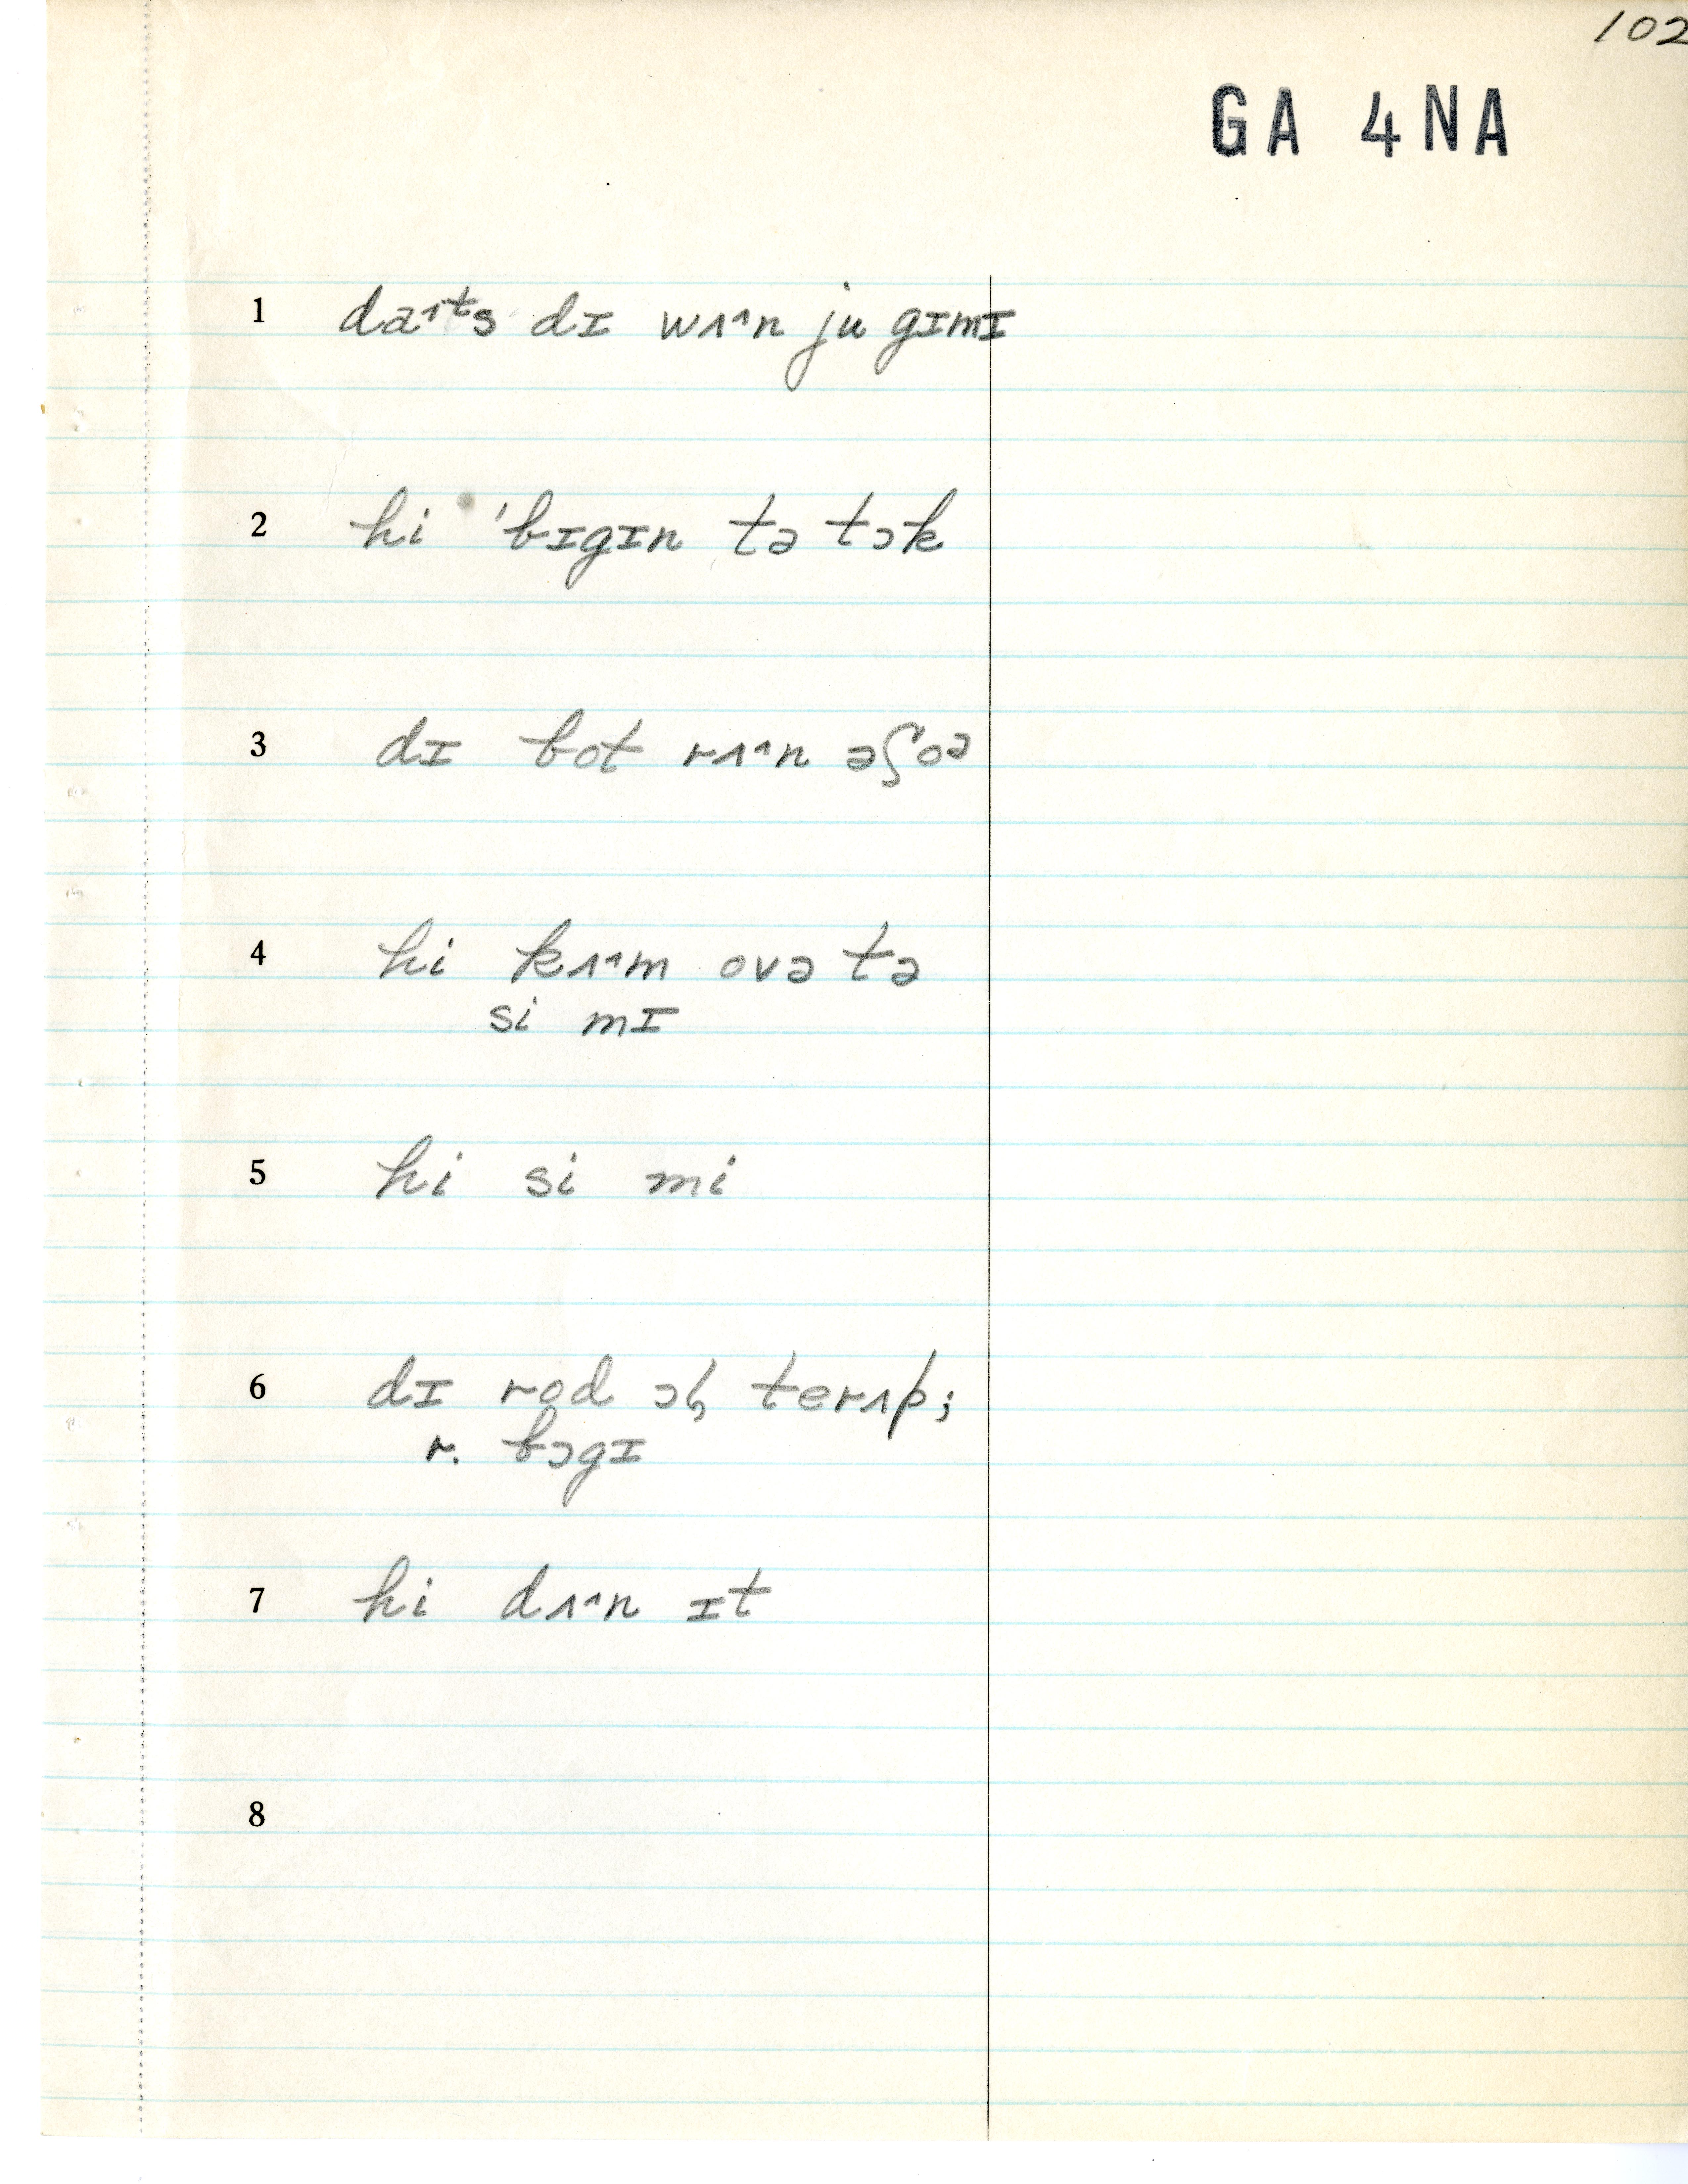 102
GA 4NA
1 daᶺᵗs dɪ wʌᶺn ju gɪmɪ
2 hi 'bɪgɪn tə tɔk
3 dɪ bot rʌᶺn əʃoᵊ
4 hi kʌᶺm ovə tə
si mɪ
5 hi si mi
6 dɪ rod ɔɮ terʌp;
r. bɔgɪ
7 hi dʌᶺn ɪt
8